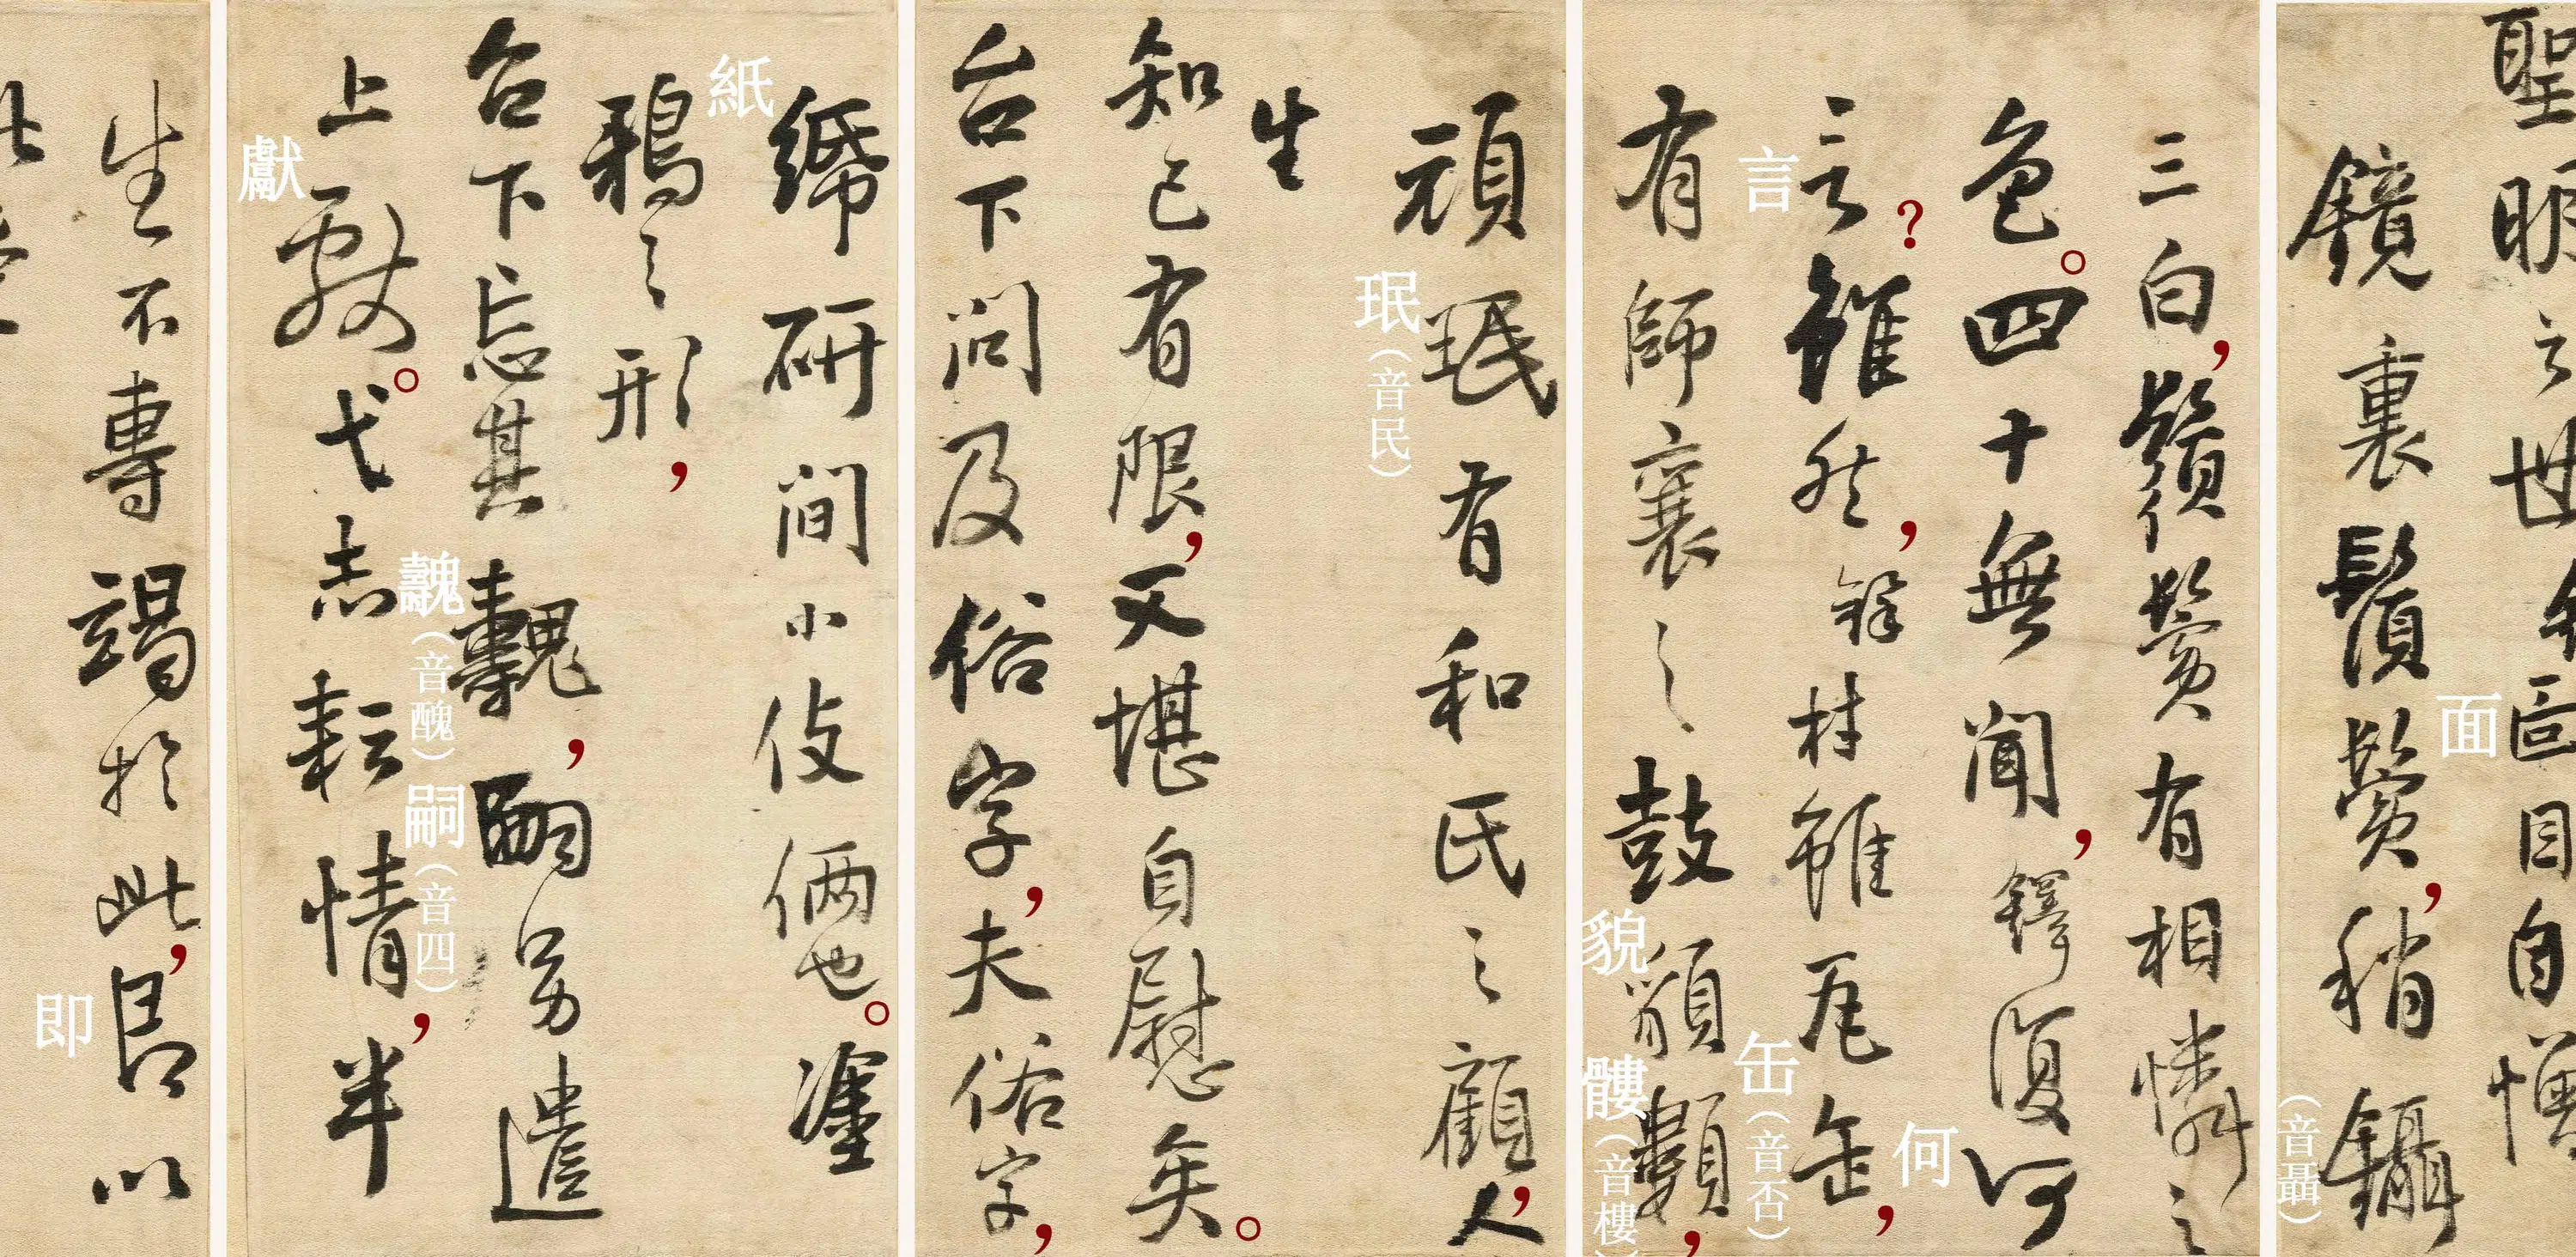 聖明之世余面目自憎
面
鏡裏鬚鬢,稍鑷
(音聶)
三白,鬚鬢有相憐之
色。四十無聞,鐸復何
何
言?雖然,鐸材雖瓦缶,
言
缶(音否)
有師襄之鼓貌髏,
貌
髏(音樓)
頑珉有和氏之顧,人
珉(音民)
生
知己有限,又堪自慰矣。
台下問及俗字,夫俗字,
紙研間小伎倆也。塗
紙
鴉之形,
台下忘其魗,嗣另遣
魗(音醜)
嗣(音四)
上獻。弋志耘情,半
獻
生不專竭於此,即以
即